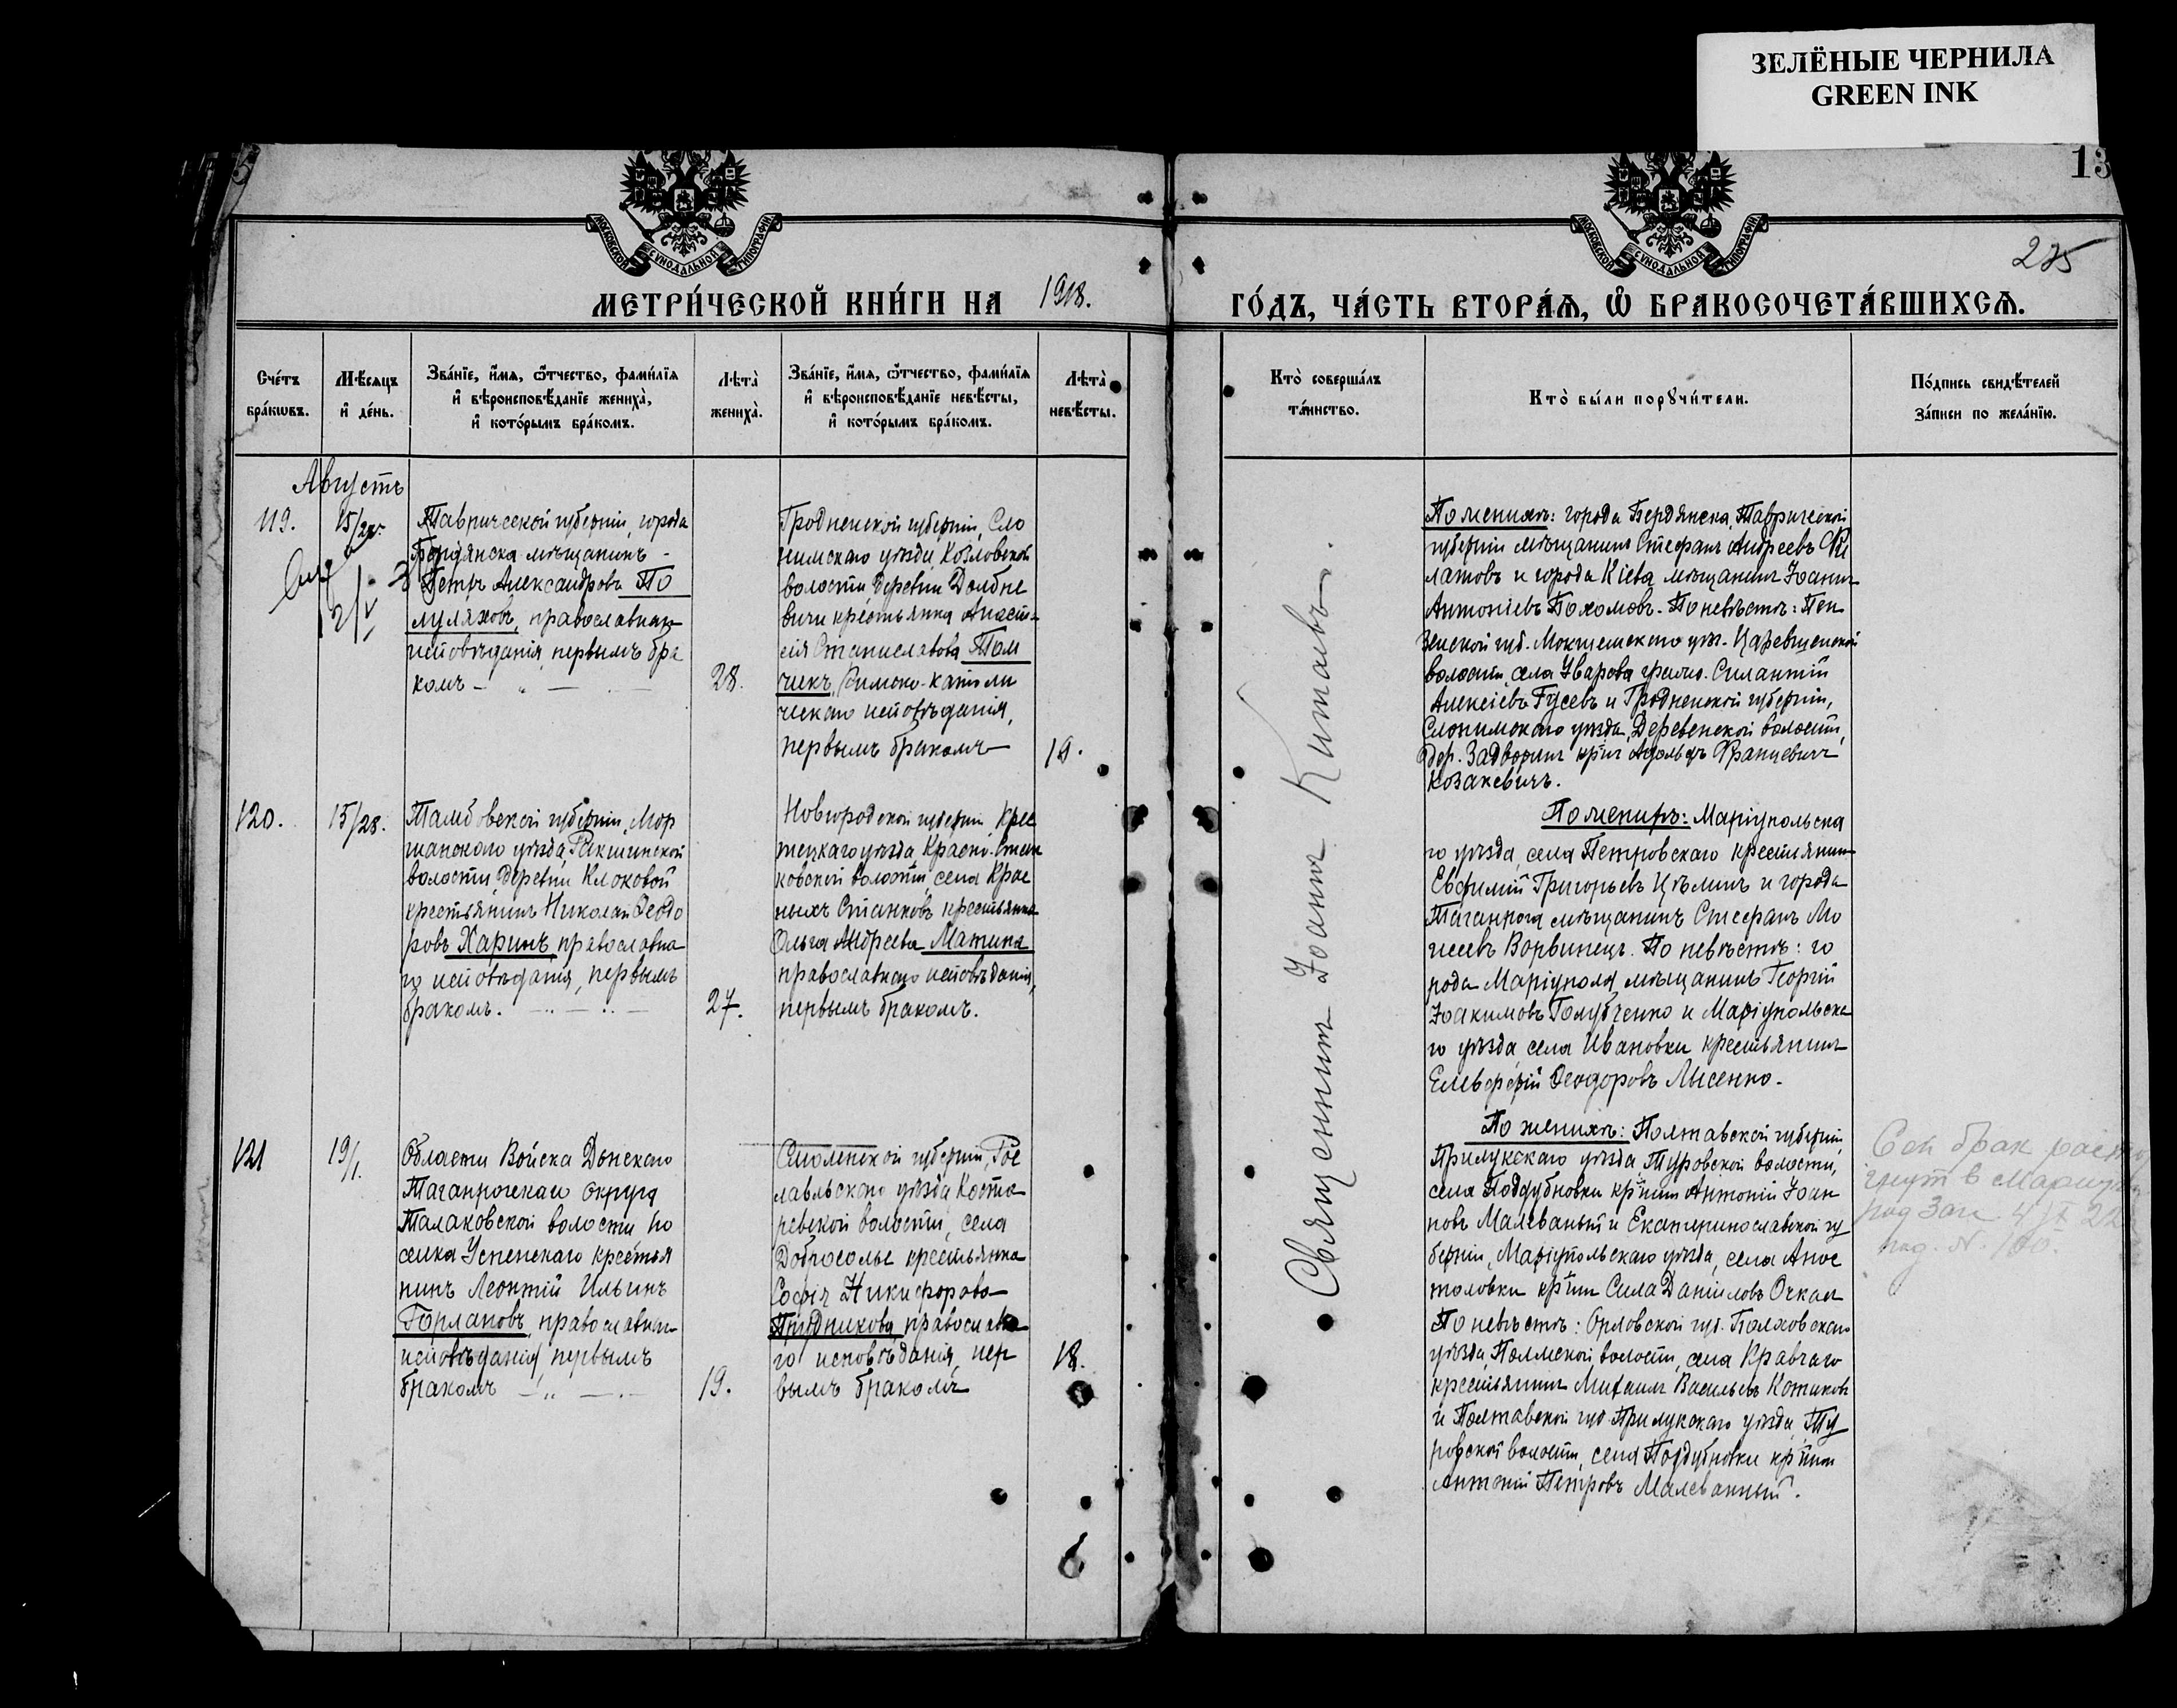 ЗЕЛЁНЫЕ ЧЕРНИЛА
GREEN INK
13
МОСКОВСКОЙ СУНОДАЛЬНОЙ ТИПОГРАФІИ
МОСКОВСКОЙ СУНОДАЛЬНОЙ ТИПОГРАФІИ
275
МЕТРИ́ЧЕСКОЙ КНИ́ГИ НА 1918.
ГО́ДЪ, ЧА́СТЬ ВТОРА́Ѧ, Ѡ҆ БРАКОСОЧЕТА́ВШИХСѦ.
Сче́тъ
бра́кѡвъ.
Мѣ́сяцъ
и҆ де́нь.
Зва́нїе, и҆́мѧ, ѻ҆́тчество, фами́лїѧ
и҆ вѣроисповѣ́данїе жениха̀,
и҆ кото́рымъ бра́комъ.
Лѣта̀
жениха̀.
Зва́нїе, и҆́мѧ, ѻ҆́тчество, фами́лїѧ
и҆ вѣроисповѣ́данїе невѣ́сты,
и҆ кото́рымъ бра́комъ.
Лѣта̀
невѣ́сты.
Кто̀ соверша́лъ
та́инство.
Кто̀ бы́ли порꙋчи́тели.
По́дпись свидѣ́телей
за́писи по жела́нїю.
Августъ
119.
15/28.
Таврической губерніи, города
Бердянска мѣщанинъ -
Петръ Александровъ По
муляховъ, православнаго
исповѣданія, первымъ бра
комъ
28.
Гродненской губерніи, Сло
нимскаго уѣзда, Козловской
волости деревни Долбне
вичи крестьянка Анаста-
сія Станиславова Том
чикъ, Римско-католи
ческаго исповѣданія,
первымъ бракомъ
19.
По женихѣ: города Бердянска, Таврической
губерніи мѣщанинъ Стефанъ Андреевъ Фи
латовъ и города Кіева мѣщанинъ Іоаннъ
Антоніевъ Пахомовъ. По невѣстѣ: Пен
зенской губ. Мокшанскаго уѣз. Царевщинской
волости, села Уварова Силантій
Алексіевъ Гусевъ и Гродненской губерніи,
Слонимскаго уѣзда, Деревенской волости,
дер. Задворки кр-нъ Адольфъ Францевичъ
Козакевичъ.
120.
15/28.
Тамбовской губерніи, Мор
шанскаго уѣзда, Ракшинской
волости, деревни Клоковой
крестьянинъ Николай Ѳеодо
ровъ Харинъ, православна
го исповѣданія, первымъ
бракомъ.
27.
Новгородской губерніи, Крес
тецкаго уѣзда, Красно-Стан
ковской волости, села Крас
ныхъ Станковъ крестьянка
Ольга Андреева Матина
православнаго исповѣданія,
первымъ бракомъ.
По женихѣ: Маріупольска
го уѣзда, села Петровскаго крестьянинъ
Евфимій Григорьевъ Цѣминъ и города
Таганрога мѣщанинъ Стефанъ Мо
исеевъ Ворвинецъ. По невѣстѣ: го
рода Маріуполя мѣщанинъ Георгій
Іоакимовъ Голубченко и Маріупольска
го уѣзда, села Ивановки крестьянинъ
Елевферій Ѳеодоровъ Лысенко.
121
19/1.
Области Войска Донскаго
Таганрогскаго округа
Талаковской волости по
селка Успенскаго крестья
нинъ Леонтій Ильинъ
Горлановъ, православнаго
исповѣданія, первымъ
бракомъ
19.
Смоленской губерніи, Рос
лавльскаго уѣзда, Коста
ревской волости, села
Доброселье крестьянка
Софія Никифорова
Прудникова православна
го исповѣданія, пер
вымъ бракомъ
18.
По женихѣ: Полтавской губерніи,
Прилукскаго уѣзда, Туровской волости,
села Поддубновки кр-нинъ Антоній Іоан
новъ Малеванный и Екатеринославской гу
берніи, Маріупольскаго уѣзда, села Апос
толовки кр-нинъ Сила Даніиловъ Очкал
По невѣстѣ: Орловской губ. Болховскаго
уѣзда, волости, села Кравчаго
крестьянинъ Михаилъ Васильевъ Котиковъ
и Полтавской губ. Прилукскаго уѣзда, Ту
ровской волости, села Поддубновки кр-нинъ
Антоній Петровъ Малеванный.
Священникъ Іоаннъ Китаевъ.
Сей брак растор
гнут в Мариуполе
под Заг. 4/IX 22
под. №. 100.